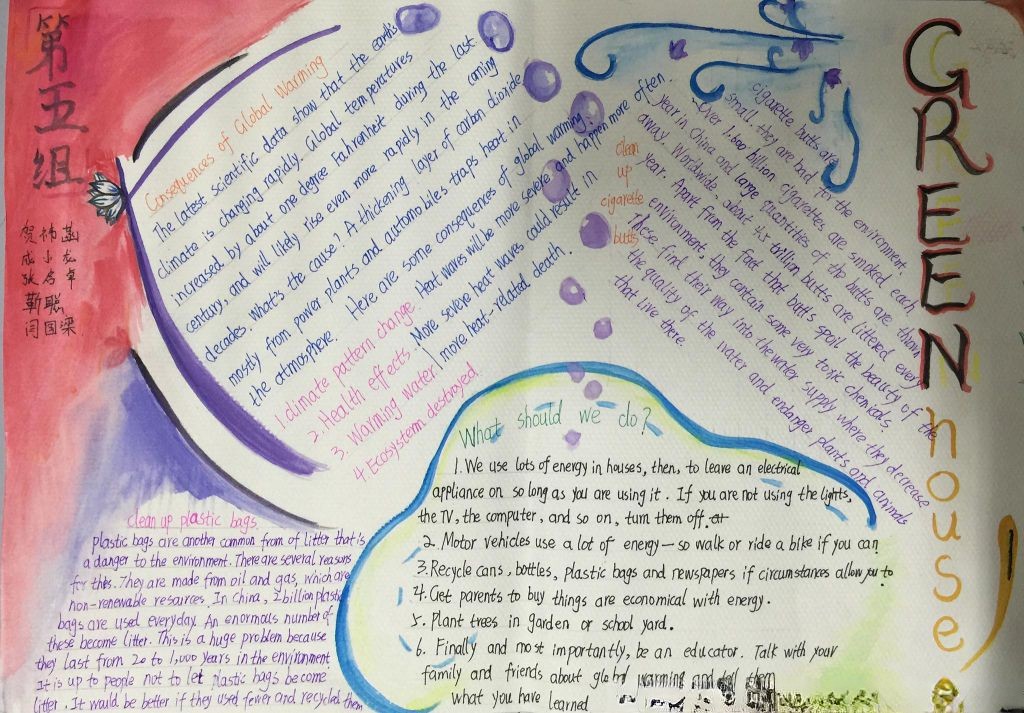 第五组
贺
成小龙
张名卓
靳聪
闫国梁
Consequences of Global Warming
The latest scientific data show that the earth's
climate is changing rapidly. Global temperatures
increased by about one degree Fahrenheit during the last
century, and will likely rise even more rapidly in the coming
decades. What's the cause? A thickening layer of carbon dioxide
mostly from power plants and automobiles traps heat in
the atmosphere. Here are some consequences of global warming.
1. climate pattern change.
2. Health effects. Heat waves will be more severe and happen more often
3. Warming Water More severe heat waves could result in
more heat-related death.
4. Ecosystem destroyed.
clean
up
cigarette
butts
cigarette butts are
small, they are bad for the environment.
Over 1,600 billion cigarettes are smoked each
year in China and large quantities of the butts are thrown
away. Worldwide about 4.5 trillion butts are littered every
year. Apart from the fact that butts spoil the beauty of the
environment, they contain some very toxic chemicals.
These find their way into the water supply where they decrease
the quality of the water and endanger plants and animals
that live there.
GREEN house
What should we do?
1. We use lots of energy in houses, then, to leave an electrical
appliance on so long as you are using it. If you are not using the lights,
the TV, the computer, and so on, turn them off.
2. Motor vehicles use a lot of energy — so walk or ride a bike if you can
3. Recycle cans, bottles, plastic bags and newspapers if circumstances allow you to
4. Get parents to buy things are economical with energy.
5. Plant trees in garden or school yard.
6. Finally and most importantly, be an educator. Talk with your
family and friends about global warming and
what you have learned
clean up plastic bags
plastic bags are another common from of litter that is
a danger to the environment. There are several reasons
for this. They are made from oil and gas, which are
non-renewable resources. In China, 2 billion plastic
bags are used everyday. An enormous number of
these become litter. This is a huge problem because
they last from 20 to 1,000 years in the environment
It is up to people not to let plastic bags become
litter. It would be better if they used fewer and recycled them